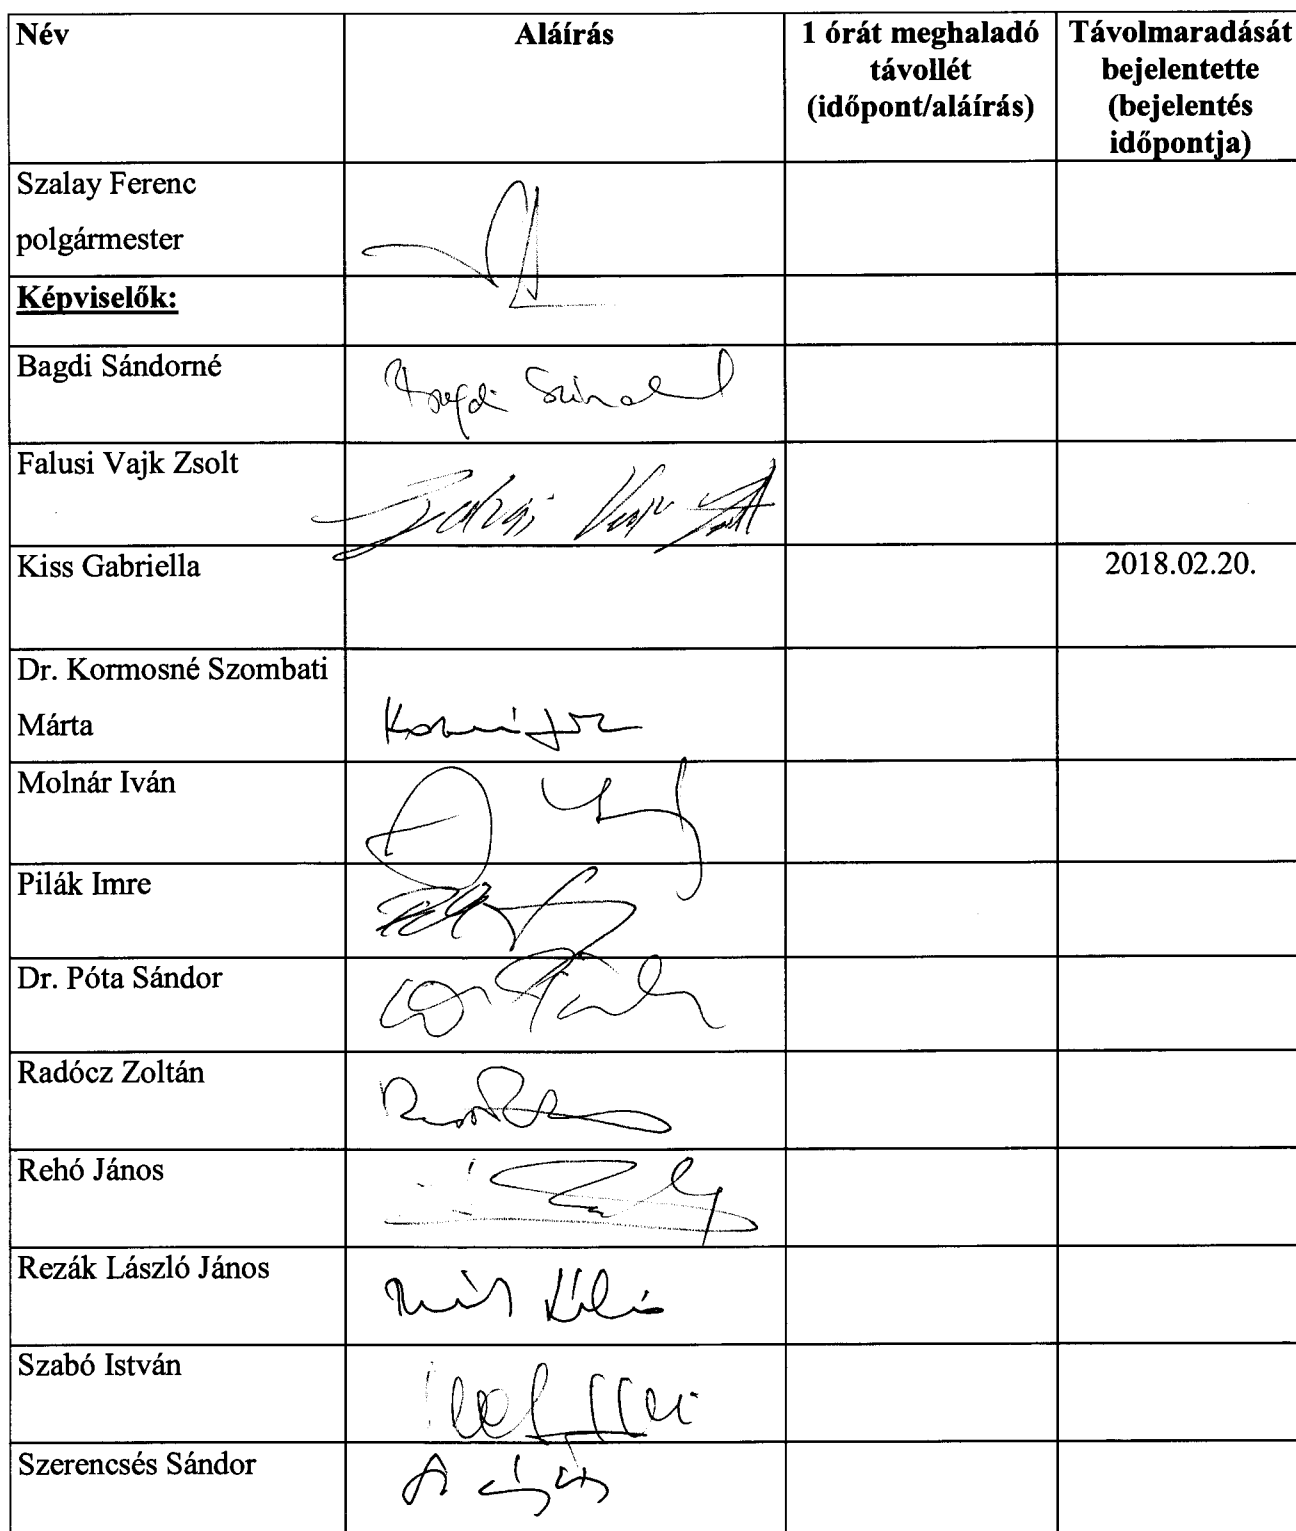 Név
Aláírás
1 órát meghaladó
távollét
(időpont/aláírás)
Távolmaradását
bejelentette
(bejelentés
időpontja)
Szalay Ferenc
polgármester
Képviselők:
Bagdi Sándorné
Bagdi Sándorné
Falusi Vajk Zsolt
Falusi Vajk Zsolt
Kiss Gabriella
2018.02.20.
Dr. Kormosné Szombati
Márta
Molnár Iván
Pilák Imre
Dr. Póta Sándor
Radócz Zoltán
Rehó János
Rezák László János
Szabó István
Szerencsés Sándor